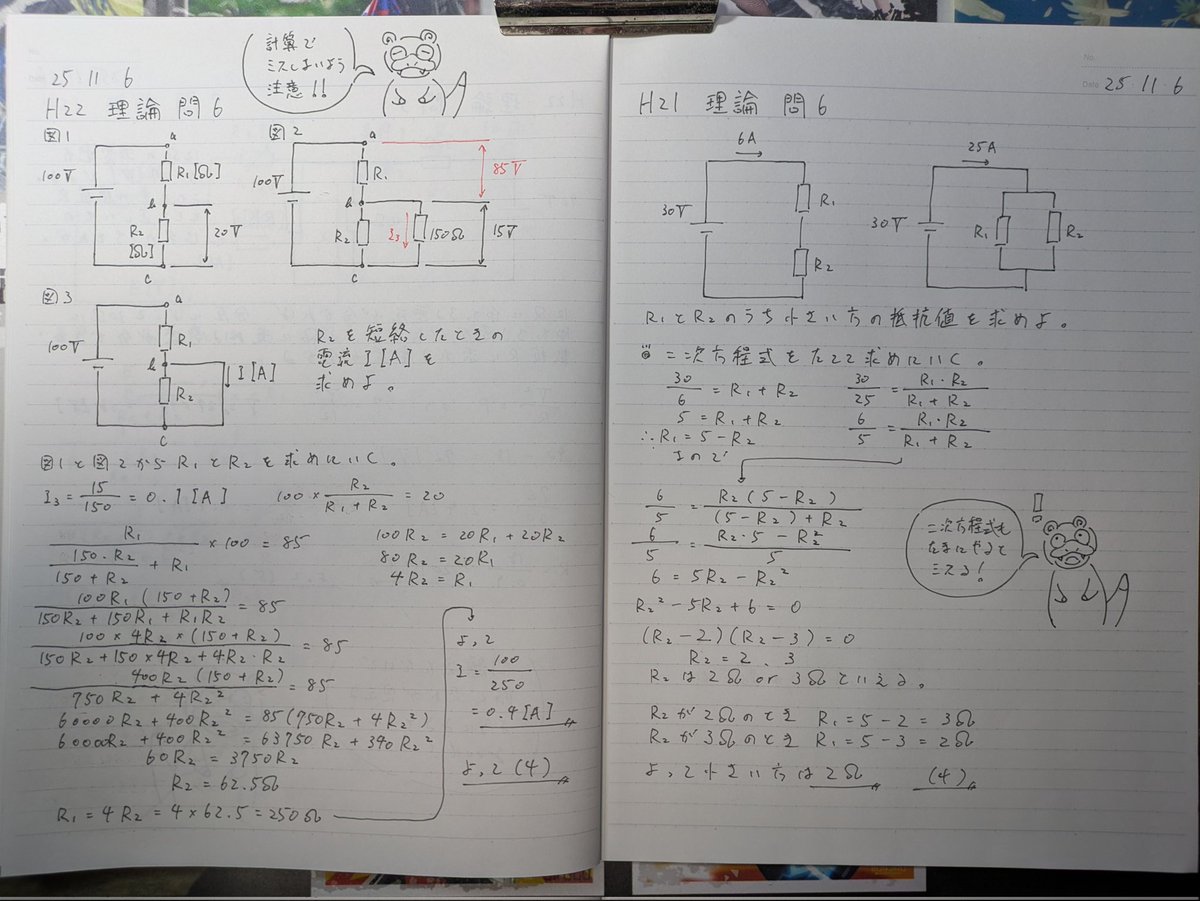 計算で
ミスしないよう
注意!!
25 11 6
H22 理論 問6
図1
a
100V
R₁[Ω]
b
R₂
[Ω]
20V
c
図2
a
100V
R₁
b
R₂
I₃
150Ω
85V
15V
c
図3
a
100V
R₁
b
I[A]
R₂
c
R₂を短絡したときの
電流I[A]を
求めよ。
図1と図2からR₁とR₂を求めにいく。
I₃ = 15/150 = 0.1[A]
100 × R₂/(R₁+R₂) = 20
R₁/(150・R₂/(150+R₂) + R₁) × 100 = 85
100R₂ = 20R₁ + 20R₂
80R₂ = 20R₁
4R₂ = R₁
100R₁(150+R₂)/(150R₂+150R₁+R₁R₂) = 85
100×4R₂×(150+R₂)/(150R₂+150×4R₂+4R₂・R₂) = 85
400R₂(150+R₂)/(750R₂+4R₂²) = 85
60000R₂+400R₂² = 85(750R₂+4R₂²)
60000R₂+400R₂² = 63750R₂+340R₂²
60R₂ = 3750R₂
R₂ = 62.5Ω
R₁ = 4R₂ = 4×62.5 = 250Ω
よって
I = 100/250
= 0.4[A]
よって(4)
No.
Date 25・11・6
H21 理論 問6
6A
30V
R₁
R₂
25A
30V
R₁
R₂
R₁とR₂のうち小さい方の抵抗値を求めよ。
二次方程式をたてて求めにいく。
30/6 = R₁+R₂
30/25 = R₁・R₂/(R₁+R₂)
5 = R₁+R₂
6/5 = R₁・R₂/(R₁+R₂)
∴R₁ = 5-R₂
なので
6/5 = R₂(5-R₂)/((5-R₂)+R₂)
6/5 = (R₂・5-R₂²)/5
6 = 5R₂-R₂²
R₂²-5R₂+6 = 0
(R₂-2)(R₂-3) = 0
R₂ = 2、3
R₂は2Ω or 3Ωといえる。
R₂が2Ωのとき R₁=5-2=3Ω
R₂が3Ωのとき R₁=5-3=2Ω
よって小さい方は2Ω (4)
!
二次方程式も
たまにやると
ミスる!